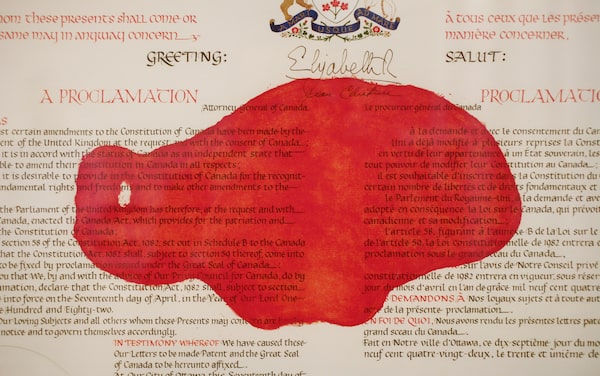 hom these presents shall come or
same may in anyway concern
GREETING:
A PROCLAMATION
Attorney General of Canada
st certain amendments to the Constitution of Canada have been made by the
ent of the United Kingdom at the request and with the consent of Canada
it is in accord with the status of Canada as an independent state that
ble to amend their Constitution in Canada in all respects
t is desirable to provide in the Constitution of Canada for the recognit-
undamental rights and freedoms and to make other amendments to the
the Parliament of the United Kingdom has therefore, at the request and with
anada, enacted the Canada Act, which provides for the patriation and
the Constitution of Canada:
section 58 of the Constitution Act, 1982, set out in Schedule B to the Canada
that the Constitution Act, 1982 shall, subject to section 59 thereof, come into
to be fixed by proclamation issued under the Great Seal of Canada
ou that We, by and with the advice of Our Privy Council for Canada, do by
amation, declare that the Constitution Act, 1982 shall, subject to section
into force on the Seventeenth day of April, in the Year of Our Lord One
e Hundred and Eighty-two.
Our Loving Subjects and all others whom these Presents may concern are hereby
notice and to govern themselves accordingly.
IN TESTIMONY WHEREOF We have caused these
Our Letters to be made Patent and the Great Seal
of Canada to be hereunto affixed
At Our City of Ottawa this Seventeenth day of
USQUE
Elizabeth R
à tous ceux que les prése
manière concerner,
SALUT:
PROCLAMATIO
Le procureur général du Canada
à la demande et avec le consentement du Can
Uni a déjà modifié à plusieurs reprises la Consti
en vertu de leur appartenance à un État souverain, les
tout pouvoir de modifier leur Constitution au Canad
il est souhaitable d'inscrire dans la Constitution du
certain nombre de libertés et de droits fondamentaux et
Le Parlement du Royaume-Uni, à la demande et avec
adopté en conséquence la Loi sur le Canada, qui prévoi
canadienne et sa modification
l'article 58, figurant à l'annexe B de la Loi sur le
de l'article 59, la Loi constitutionnelle de 1982 entrera
proclamation sous le grand sceau du Canada,
sur l'avis de Notre Conseil privé
constitutionnelle de 1982 entrera en vigueur, sous réser
jour du mois d'avril en l'an de grâce mil neuf cent quatre
DEMANDONS À Nos loyaux sujets et à toute
acte de la présente proclamation
EN FOI DE QUOI, Nous avons rendu les présentes lettres pat
grand sceau du Canada
Fait en Notre ville d'Ottawa, ce dix-septième jour du mo
neuf cent quatre-vingt-deux, le trente et unième de